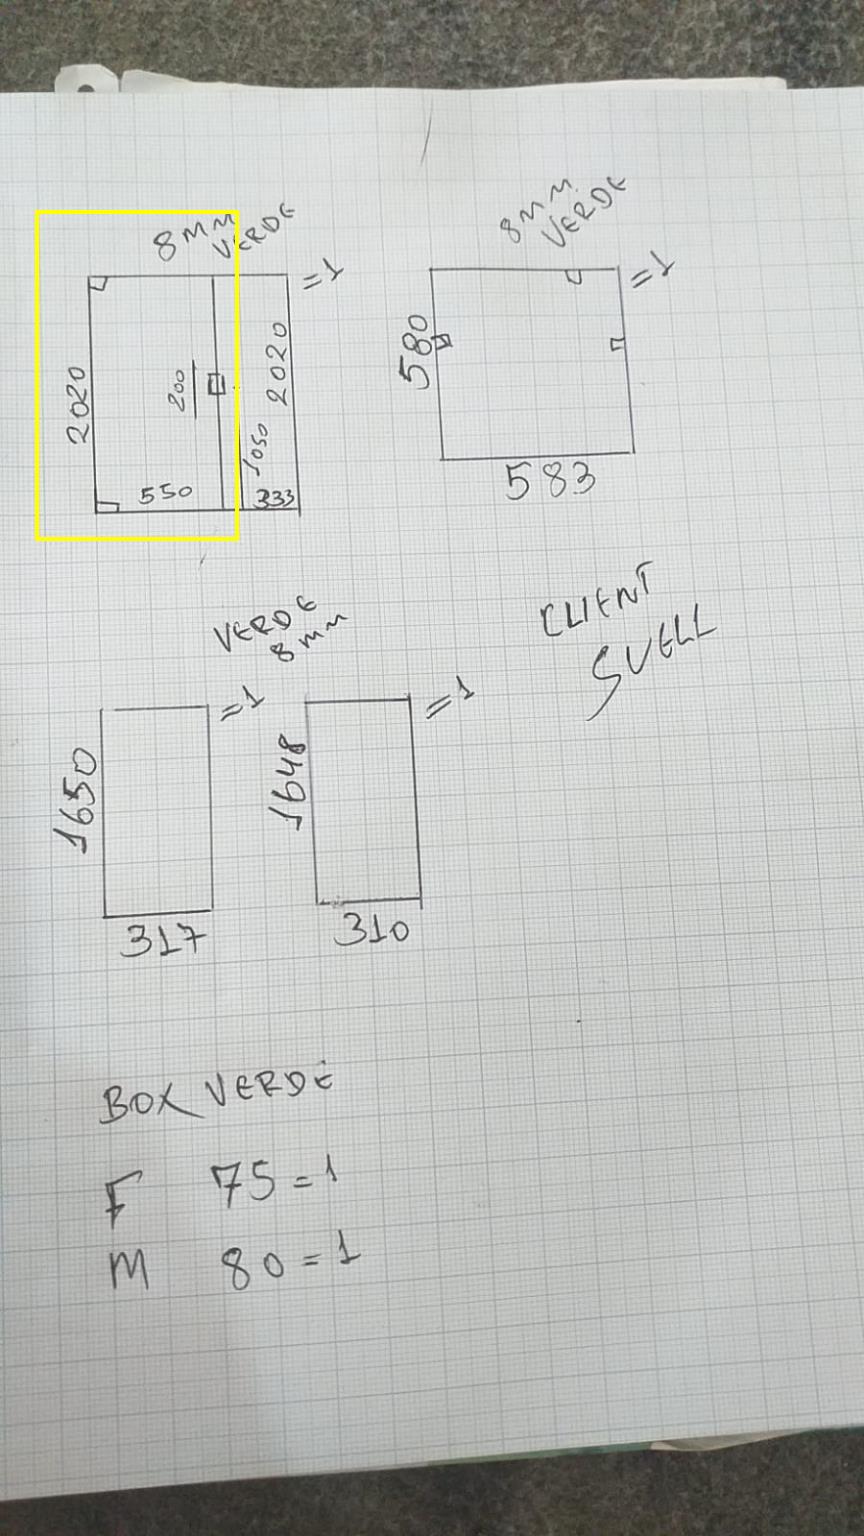 8MM
VERDE
=1
2020
200
2020
1050
550
333
8MM
VERDE
=1
580
583
VERDE
8MM
CLIENT
SUELL
=1
1650
317
=1
1648
310
BOX VERDE
F 75=1
M 80=1